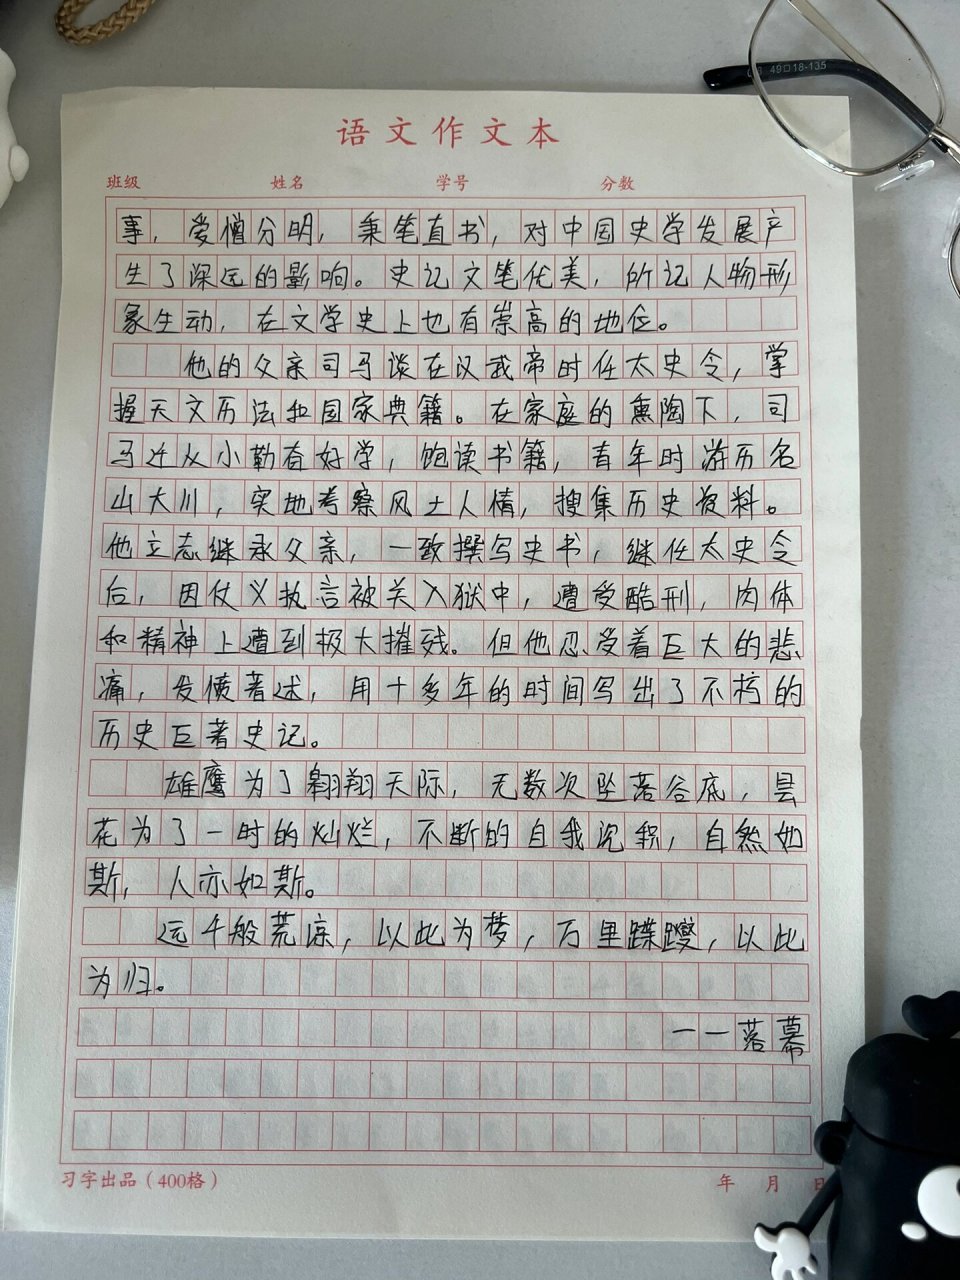 49□18-135
语文作文本
班级 姓名 学号 分数
事,爱憎分明,秉笔直书,对中国史学发展产
生了深远的影响。史记文笔优美,所记人物形
象生动,在文学史上也有崇高的地位。
他的父亲司马谈在汉武帝时任太史令,掌
握天文历法和国家典籍。在家庭的熏陶下,司
马迁从小勤奋好学,饱读书籍,青年时游历名
山大川,实地考察风土人情,搜集历史资料。
他立志继承父亲,一致撰写史书,继任太史令
后,因仗义执言被关入狱中,遭受酷刑,肉体
和精神上遭到极大摧残。但他忍受着巨大的悲
痛,发愤著述,用十多年的时间写出了不朽的
历史巨著史记。
雄鹰为了翱翔天际,无数次坠落谷底,昙
花为了一时的灿烂,不断的自我沉积,自然如
斯,人亦如斯。
远千般荒凉,以此为梦,万里蹀躞,以此
为归。
——落幕
习字出品(400格) 年 月 日